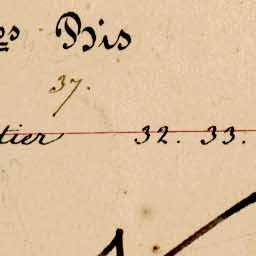 os Bis
37.
tier 32. 33.